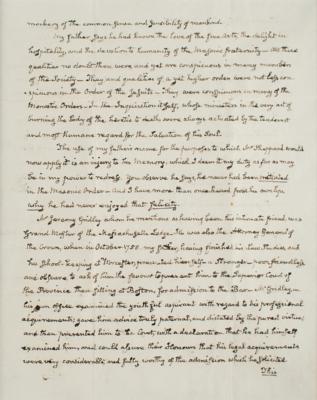 mockery of the common sense and sensibility of mankind.
My father says he had known the love of the fine Arts, the delight in
hospitality, and the devotion to humanity of the Masonic fraternity — All these
qualities no doubt then were and yet are conspicuous in many members
of the Society — They and qualities of a yet higher order were not less con
spicuous in the Order of the Jesuits — They were conspicuous in many of the
Monastic Orders — In the Inquisition itself, whose ministers in the very act of
burning the body of the heretic to death were always actuated by the tenderest
and most humane regard for the Salvation of his Soul.
The use of my father's name for the purposes to which Mr Sheppard would
now apply it is an injury to his Memory, which I deem it my duty as far as may
be in my power to redress. You observe he says, he never had been initiated
in the Masonic Order — and I have more than once heard from his own lips
why he had never enjoyed that felicity.
Mr Jeremy Gridley whom he mentions as having been his intimate friend was
Grand Master of the Massachusetts Lodge. He was also the Attorney General of
the Crown, when in October 1758 my father, having finished his Law Studies, and
his School-keeping at Worcester, presented himself — a Stranger, poor, friendless
and obscure to ask of him the favour to present him to the Superior Court of
the Province then sitting at Boston, for admission to the Bar. Mr Gridley, in
his own office examined the youthful aspirant with regard to his professional
acquirements; gave him advice truly paternal, and dictated by the purest virtue;
and then presented him to the Court, with a declaration that he had himself
examined him, and could assure their Honours that his legal acquirements
were very considerable, and fully worthy of the admission which he solicited
This